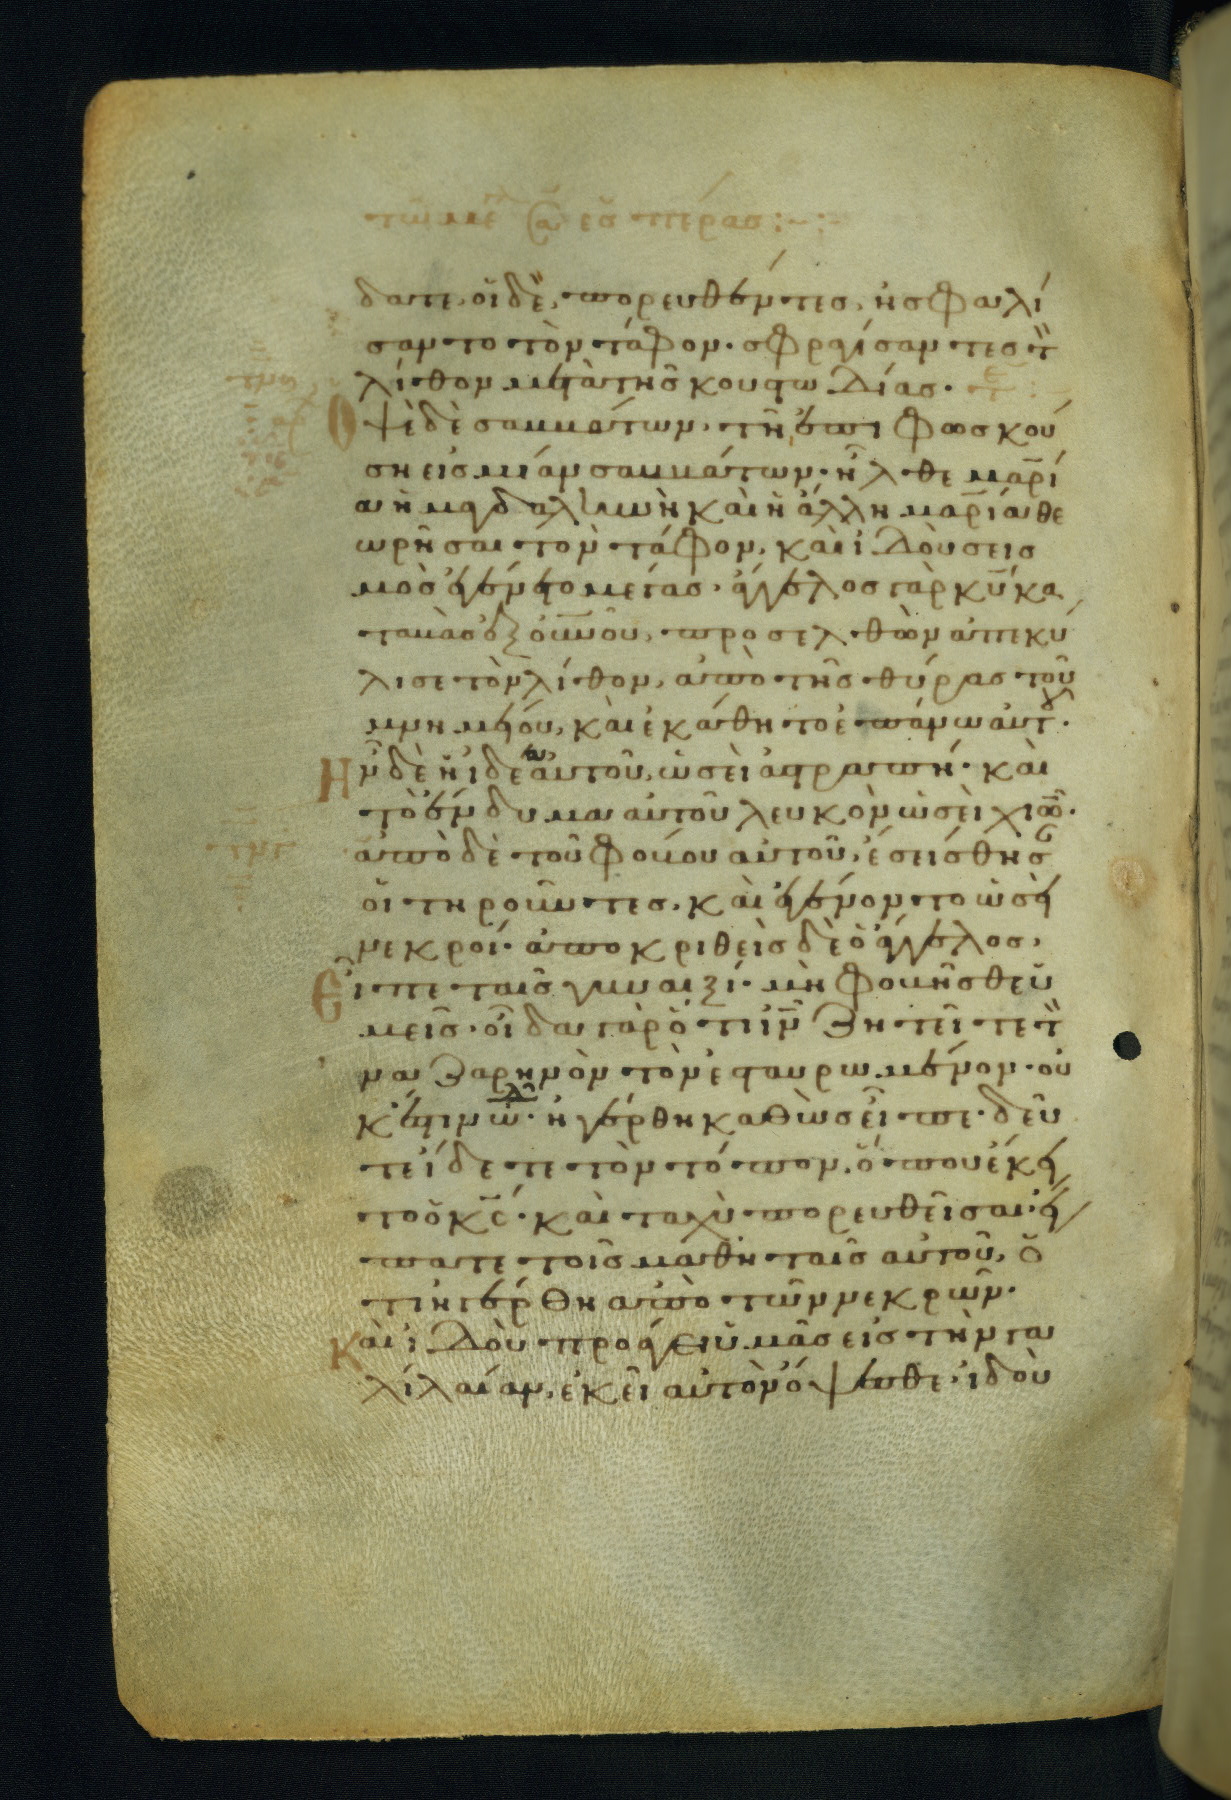 δατε, οἱ δὲ, πορευθέντες, ἠσφαλί
σαντο τὸν τάφον. σφραγίσαντες τ̀
λίθον μετὰ τῆς κουστωδίας.
Ὀψὲ δὲ σαββάτων, τῆ ἐπιφωσκού
ση εἰς μίαν σαββάτων. ἦλθε μαρί
α ἡ μαγδαληνὴ καὶ ἡ ἄλλη μαρία θε
ωρῆσαι τὸν τάφον, καὶ ἰδοὺ σεισ
μὸς ἐγένετο μέγας. ἄγγελος γὰρ κῡ κα
ταβὰς ἐξ οὐνοῦ, προσελθὼν ἀπεκύ
λισε τὸν λίθον, ἀπὸ τῆς θύρας τοῦ
μνημείου, καὶ ἐκάθητο ἐπάνω αὐτ.
Ην δὲ ἡ ἰδέα αὐτοῦ, ὡσεὶ ἀστραπή. καὶ
τὸ ἔνδυμα αὐτοῦ λευκὸν ὡσεὶ χιῶ.
ἀπὸ δὲ τοῦ φόβου αὐτοῦ, ἐσείσθησ
οἱ τηροῦντες. καὶ ἐγένοντο ὡσεὶ
νεκροί. ἀποκριθεὶς δὲ ὁ ἄγγελος,
Εἶπε ταῖς γυναιξί. μὴ φοβῆσθε ὑ
μεῖς. οἶδα γὰρ ὅτι ιν̄ ζητεῖτε τ̀
ναζαρηνὸν τὸν ἐσταυρωμένον. οὐ
κ ἔστιν ὧδε. ἠγέρθη καθὼς εἶπε. δεῦ
τε ἴδετε τὸν τόπον, ὅπου ἔκει
το ὁ κς̄. καὶ ταχὺ πορευθεῖσαι εἴ
πατε τοῖς μαθηταῖς αὐτοῦ, ὅ
τι ἠγέρθη ἀπὸ τῶν νεκρῶν.
Καὶ ἰδοὺ προάγει ὑμᾶς εἰς τὴν γα
λιλαίαν, ἐκεῖ αὐτὸν ὄψεσθε. ἰδοὺ